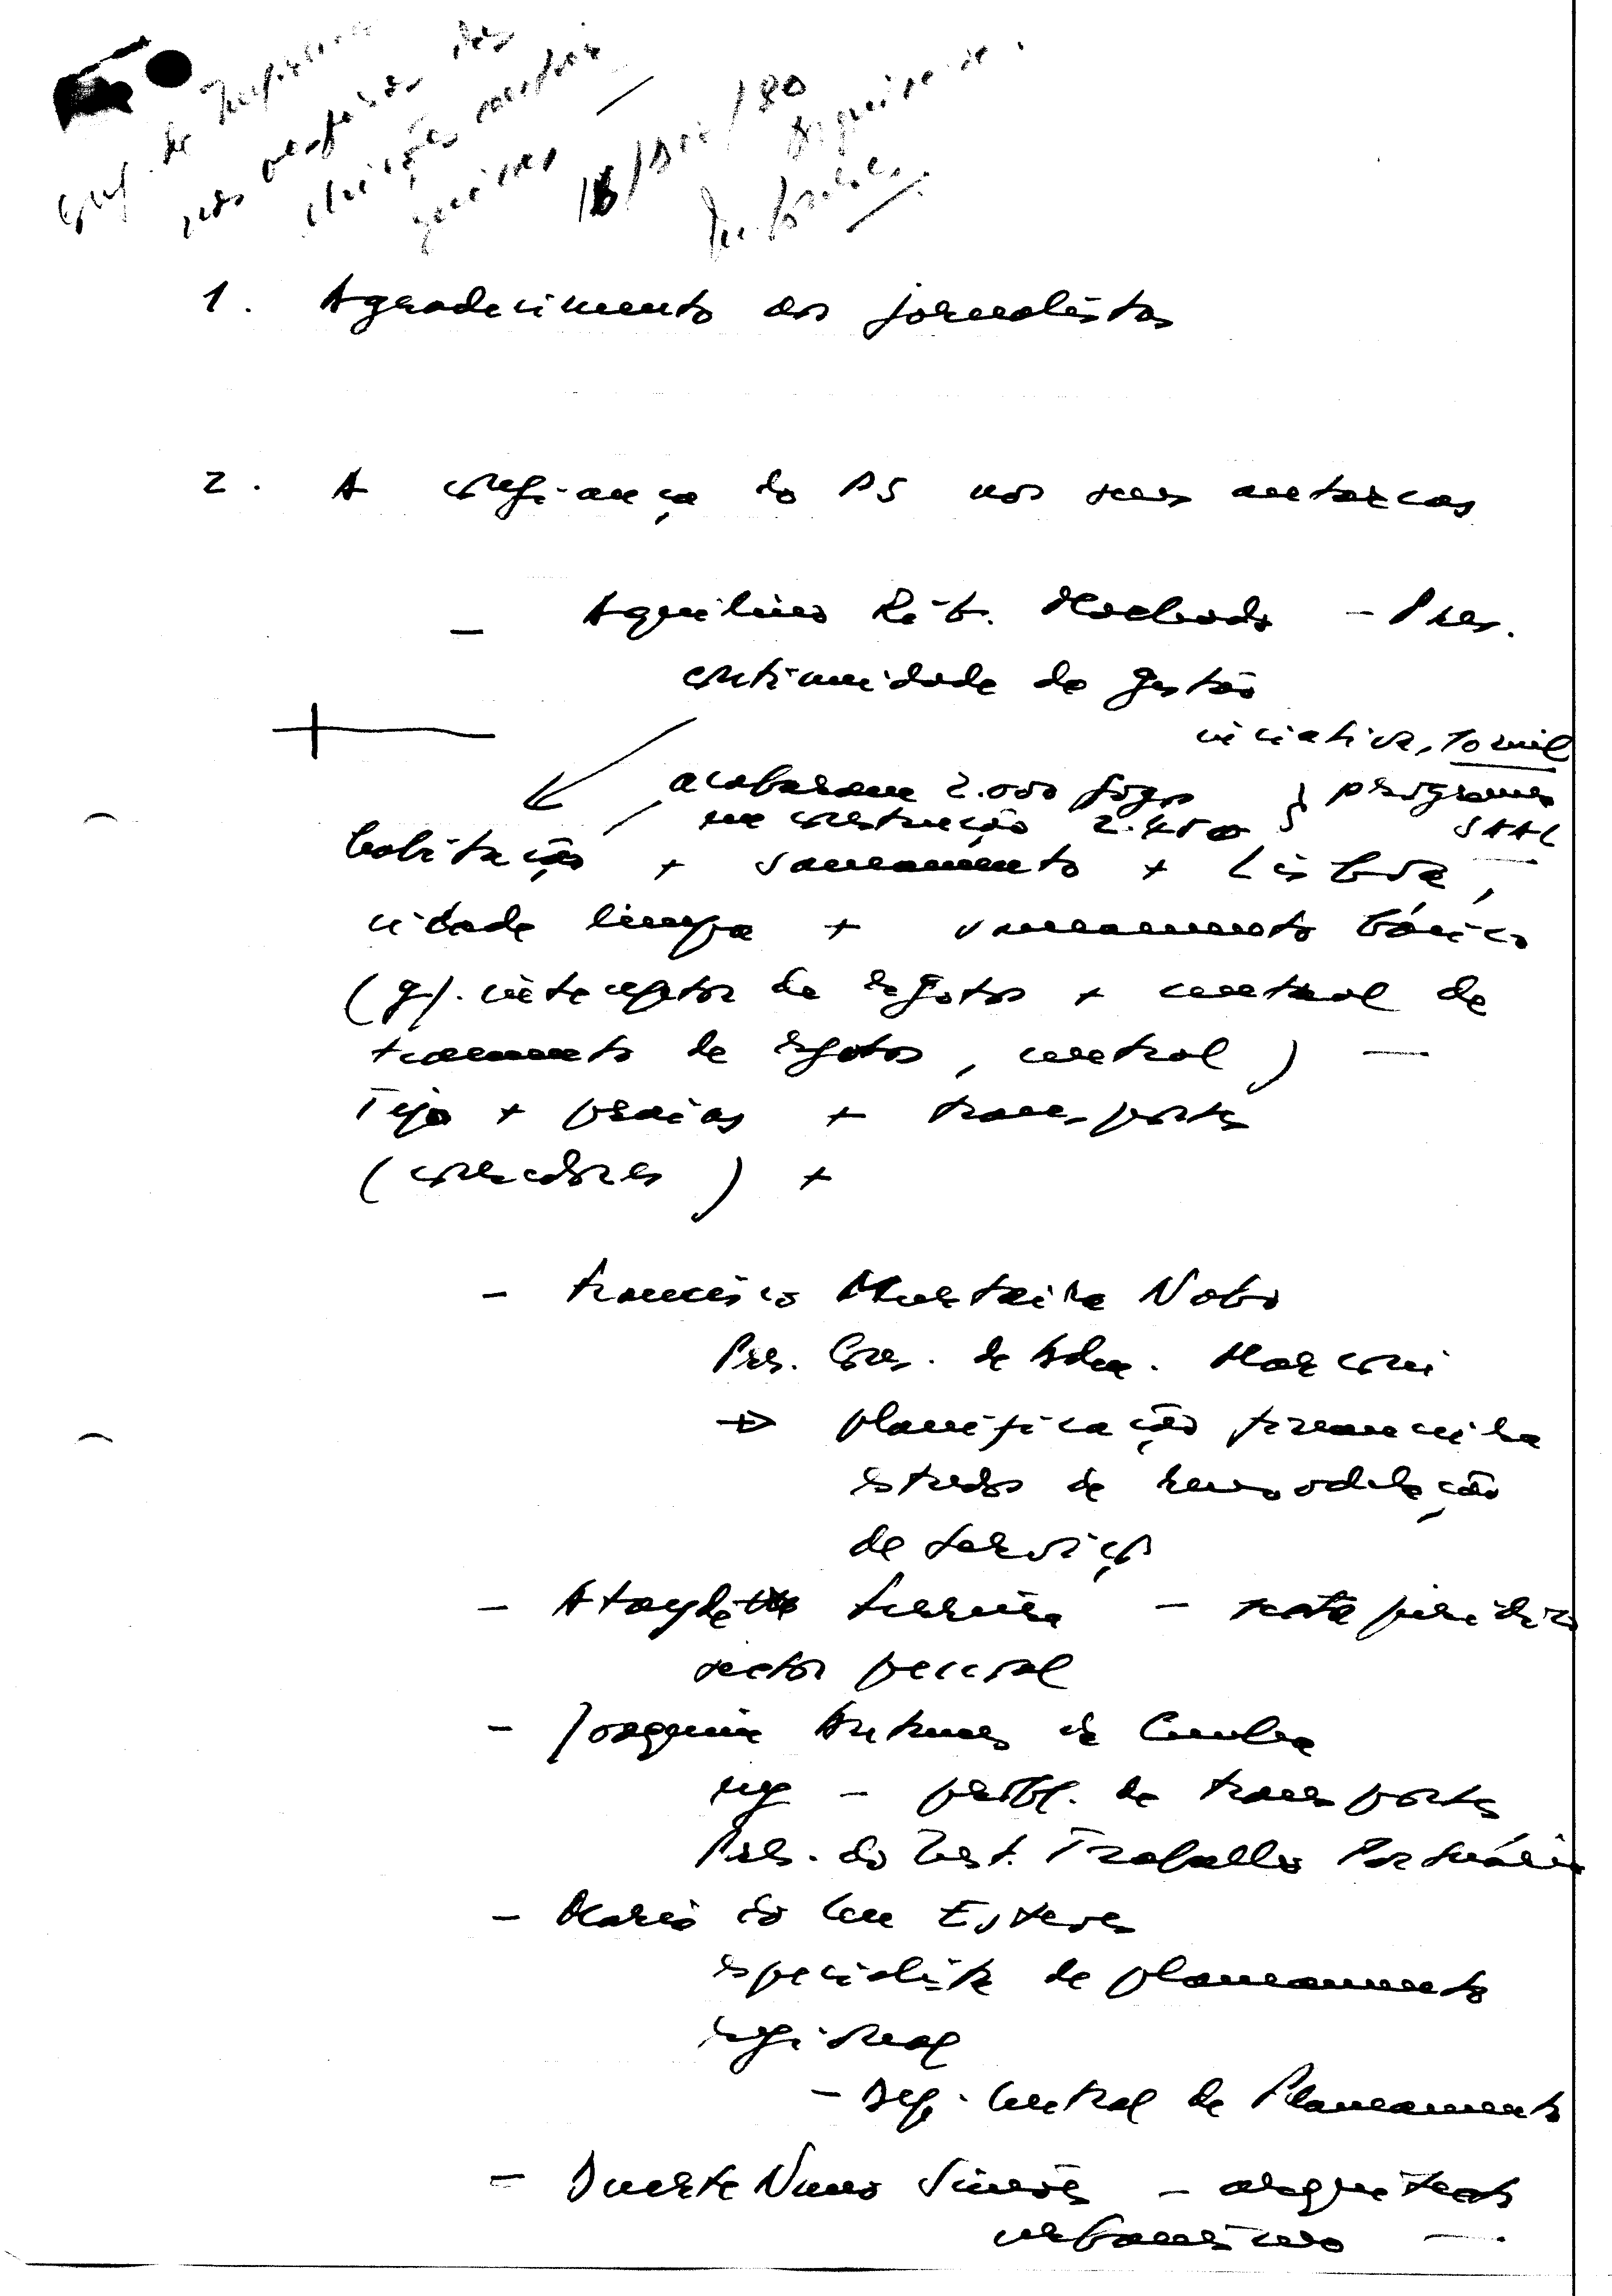 Conf. de Imprensa
nas vésperas das
eleições
16/Dez/80
1. Agradecimento aos jornalistas
2. A confiança do PS nos seus autarcas
- Aquilino Rib. Machado - Pres.
continuidade de gestão
iniciativa, 10 mil
acabaram 2.000 fogos } programa
em construção 2.450 } SAAL
habitação + saneamento + Lisboa,
cidade limpa + saneamento básico
(gr. interceptor de esgotos + central de
tratamento de esgotos, central) —
Tejo + praias + transportes
(corredores) +
- Francisco Monteiro Nobo
Pres. Cons. de Adm. Marconi
→ planificação financeira
estudos de remodelação
de serviços
- Atayde Ferreira - jurídico
sector
- Joaquim Antunes da Cunha
eng - probl. de transportes
Pres. do Inst. Trabalho Portuário
- Maria do Esteves
especialista de planeamento
regional
- Dep. Central de Planeamento
- Duarte Nuno Simões - arquitecto
urbanismo —